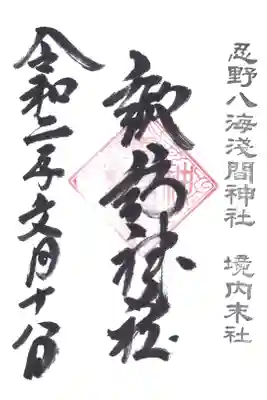 忍野八海淺間神社 境内末社
諏訪神社
令和二年文月十八日